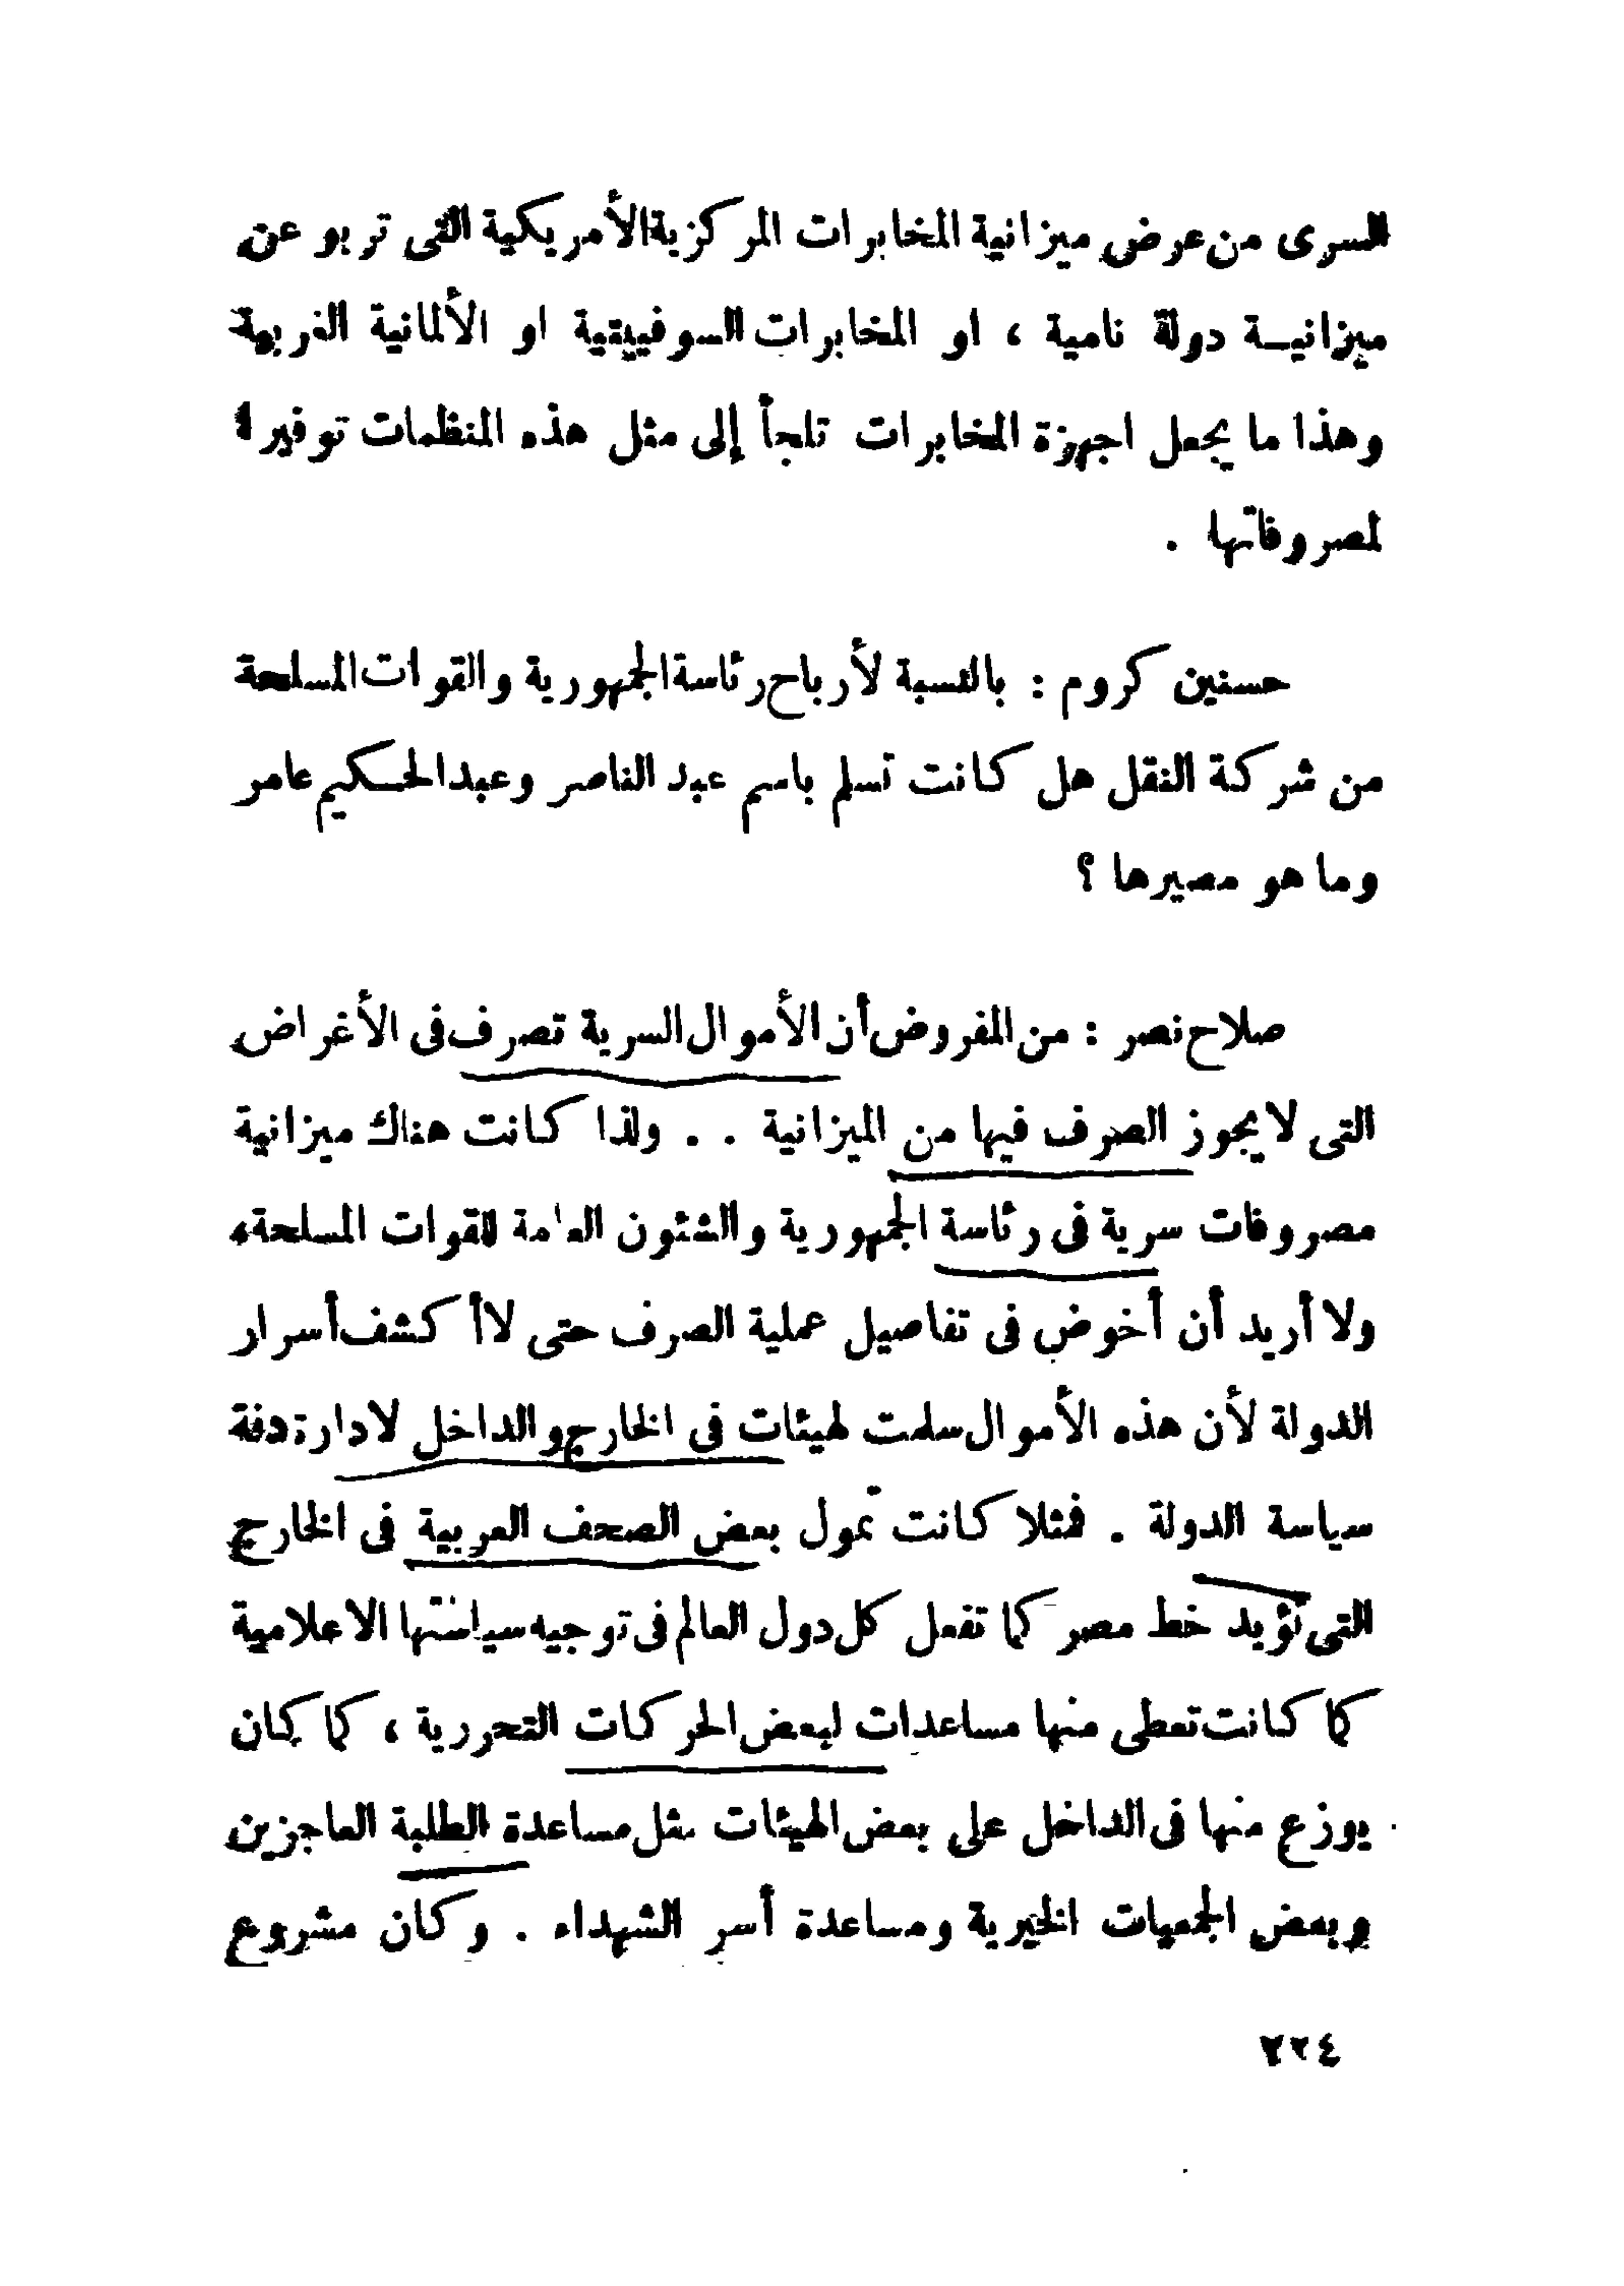 السرى من عرض ميزانية المخابرات المركزية الأمريكية التى تربو عن
ميزانيـة دولة نامية ، او المخابرات السوفييتية او الألمانية الغربية
وهذا ما يجعل اجهزة المخابرات تلجأ إلى مثل هذه المنظمات توفيرا
لمصروفاتها .
حسنين كروم : بالنسبة لأرباح رئاسة الجمهورية والقوات المسلحة
من شركة النقل هل كانت تسلم باسم عبد الناصر وعبد الحكيم عامر
وما هو مصيرها ؟
صلاح نصر : من المفروض أن الأموال السرية تصرف فى الأغراض
التى لا يجوز الصرف فيها من الميزانية . . ولذا كانت هناك ميزانية
مصروفات سرية فى رئاسة الجمهورية والشئون العامة للقوات المسلحة،
ولا أريد أن أخوض فى تفاصيل عملية الصرف حتى لا أكشف أسرار
الدولة لأن هذه الأموال سلمت لهيئات فى الخارج والداخل لادارة دفة
سياسة الدولة . فمثلا كانت تمول بعض الصحف العربية فى الخارج
التى تؤيد خط مصر كما تفعل كل دول العالم فى توجيه سياستها الاعلامية
كما كانت تعطى منها مساعدات لبعض الحركات التحررية ، كما كان
يوزع منها فى الداخل على بعض الهيئات مثل مساعدة الطلبة العاجزين
وبعض الجمعيات الخيرية ومساعدة أسر الشهداء . وكان مشروع
٢٢٤